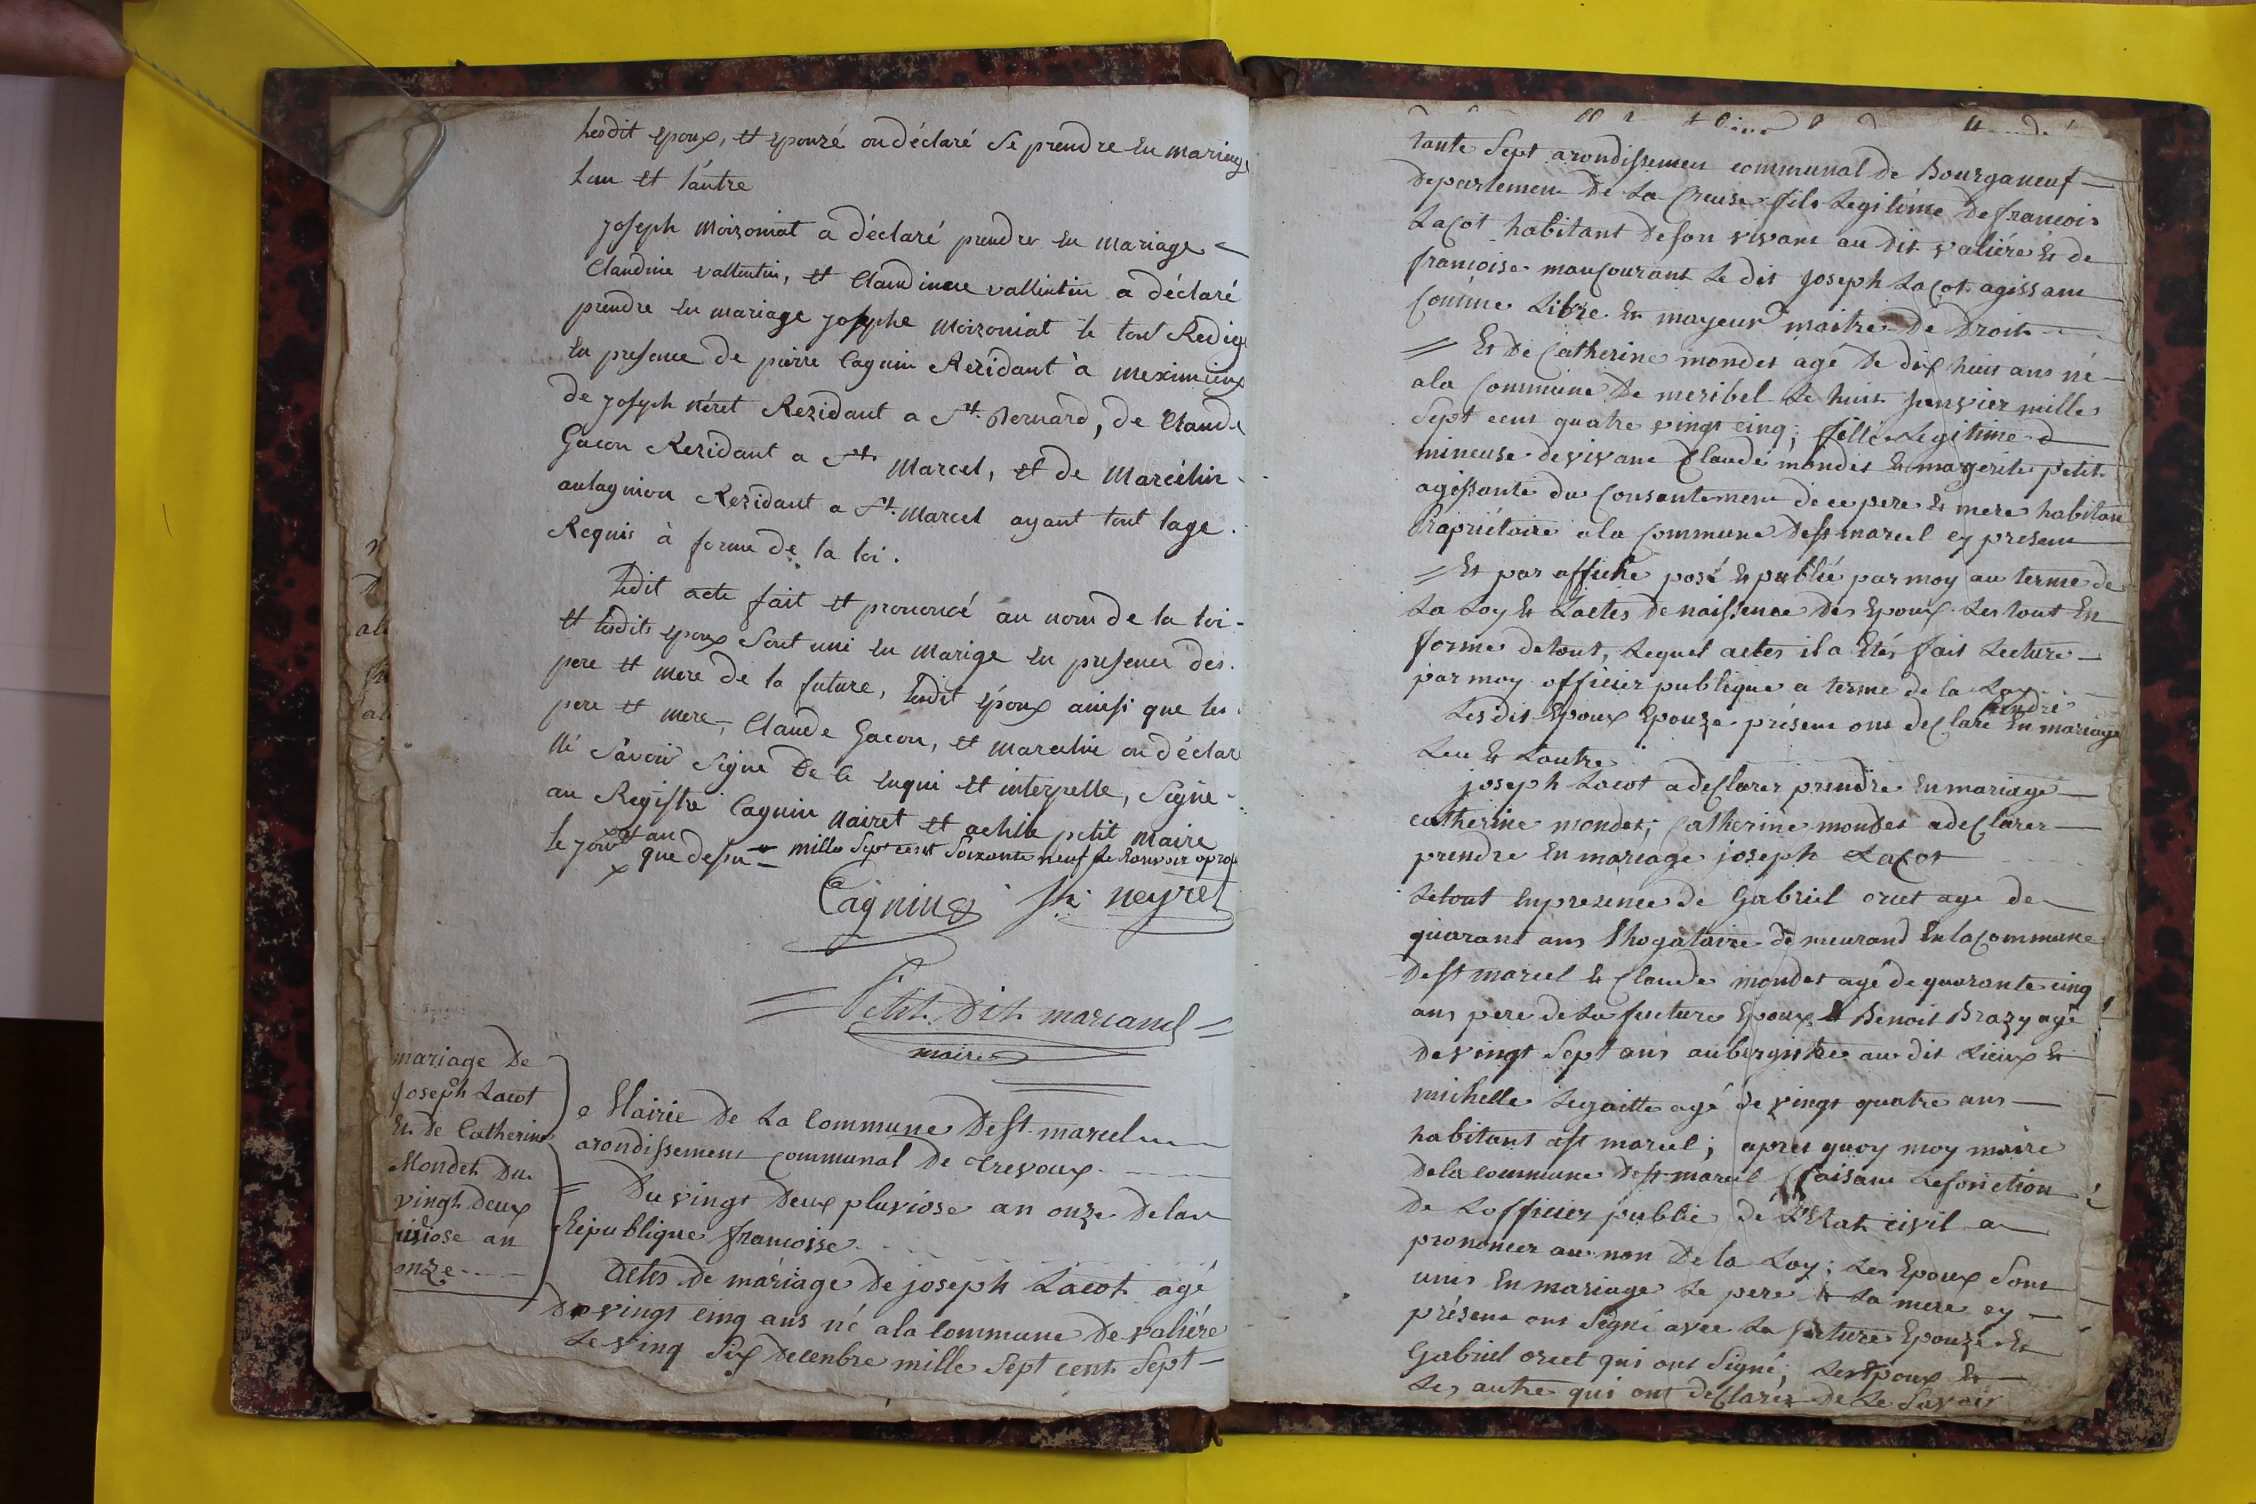 Lesdit epoux, et epouzé on déclaré Se prendre en mariage
lun et l'autre
joseph Moizoniat a déclaré prendre en mariage
Claudine vallentin, et Claudinene vallentin a déclaré
prendre en mariage josephe Moizoniat le tout Redigé
en presence de pierre Cagnin Rezidant à meximieux
de joseph néret Rezidant a St. Bernard, de Claude
Gacon Rezidant a St. Marcel, et de Marcélin
aulagnion Rezidant a St. Marcel ayant tout lage
Requis à forme de la loi.
Ledit acte fait et prononcé au nom de la loi
et lesdits epoux Sont uni en Marige en presence des
pere et mere de la future, lesdit époux ainsi que les
pere et mere, Claude Gacon, et Marcelin on déclaré
né Savoir Signe de ce enqui et interpelle, Signe
au Registre Cagnin Nairet et achile petit maire
le jour et an
que dessu mille Sept cent Soixante neuf
Cagnin neyret
Petit Dit marcand
maire
mariage De
Joseph Lacot
Et De Catherine
Mondet Du
vingt Deux
viose an
onze
Mairie De La Commune De St. marcel
arondissement Communal De Trevoux
Du vingt Deux pluviose an onze Dela
Republique francoise
Actes De mariage De joseph Lacot agé
De vingt cinq ans né ala Commune De valiére
Le vinq Six Decenbre mille Sept cent Sept
tante Sept arondissemen communal de Bourganeuf
Departemen De La Creuse fils Legitime De francois
Lacot habitant De son vivant au dit valiére Et de
francoise maucourant Le dit Joseph Lacot agissant
Comme Libre Et mayeur maitre De Droit
Et De Catherine mondet agé De dix huit ans né
ala Commune De meribel Le huit Janvier mille
Sept cent quatre vingt cinq; fille Legitime &
mineuse de vivant Claude mondet Et margerite petit
agissante du Consantement de ce pere Et mere habitant
Propriétaire ala Commune De St marcel cy present
Et par affiche posé Et publié par moy au terme de
La Loy Et Lactes De naissence Des Epoux Les tout En
forme de tout, Lequel actes il a Etés fait Lecture
par moy officier publique a terme de la Loy
Les dit Epoux Epouze présent ont declaré prendre En mariage
Leu Et Lautre
joseph Lacot a declarer prendre En mariage
catherine mondet; Catherine mondet a declarer
prendre En mariage joseph Lacot
Letout En presence De Gabriel oriet agé de
quarant ans demeurand En la Commune
De St marcel Et Claude mondet agé de quarante cinq
ans pere De La future Epoux Et Benoit Brazy agé
De vingt Sept ans aubergiste au dit Lieux Et
michelle agé de vingt quatre ans
habitant a St marcel; apres quoy moy maire
De la Commune De St marcel faisant Le fonction
De Lofficier public de L'Etat civil a
prononcer au non De la Loy; Les Epoux Sont
unis En mariage Le pere Et La mere cy
présent ont Signé avec La future Epouze Et
Gabriel oriet qui ont Signé; Les Epoux Et
Les autre qui ont declarer De Le Savoir